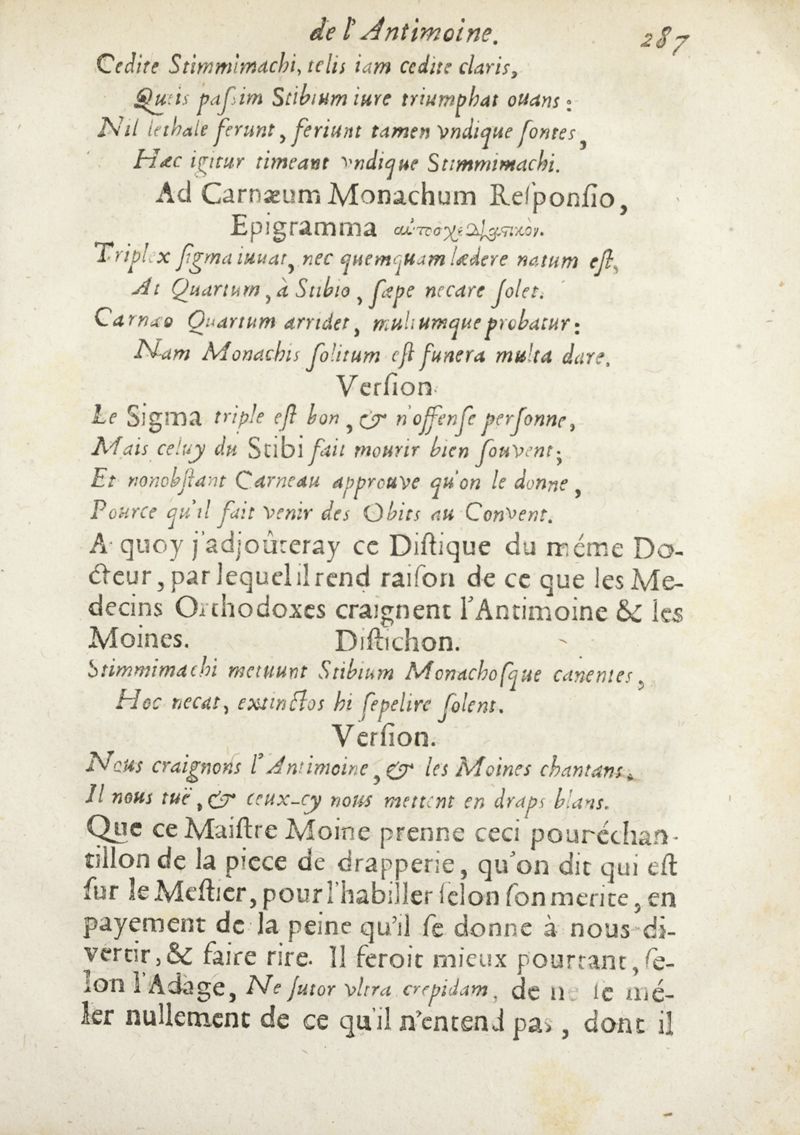 de l'Antimoine. 287
Cedite Stimmimachi, telis iam cedite claris,
Queis paſsim Stibium iure triumphat ouans :
Nil lethale ferunt, feriunt tamen vndique ſontes,
Hæc igitur timeant vndique Stimmimachi.
Ad Carnæum Monachum Reſponſio,
Epigramma
Triplex ſigma iuuat, nec quemquam lædere natum eſt,
At Quartum, à Stibio, ſæpe necare ſolet.
Carnæo Quartum arridet, multumque probatur :
Nam Monachis ſolitum eſt funera multa dare.
Verſion.
Le Sigma triple eſt bon, & n'offenſe perſonne,
Mais celuy du Stibi fait mourir bien ſouvent;
Et nonobſtant Carneau approuve qu'on le donne,
Pource qu'il fait venir des Obits au Convent.
A quoy j'adjoûteray ce Diſtique du méme Do-
cteur, par lequel il rend raiſon de ce que les Me-
decins Orthodoxes craignent l'Antimoine & les
Moines. Diſtichon.
Stimmimachi metuunt Stibium Monachoſque canentes,
Hoc necat, extinctos hi ſepelire ſolent.
Verſion.
Nous craignons l'Antimoine, & les Moines chantans,
Il nous tuë, & ceux-cy nous mettent en draps blans.
Que ce Maiſtre Moine prenne ceci pour échan-
tillon de la piece de drapperie, qu'on dit qui eſt
ſur le Meſtier, pour l'habiller ſelon ſon merite, en
payement de la peine qu'il ſe donne à nous di-
vertir, & faire rire. Il feroit mieux pourtant, ſe-
lon l'Adage, Ne ſutor vltra crepidam, de ne ſe mé-
ler nullement de ce qu'il n'entend pas, dont il